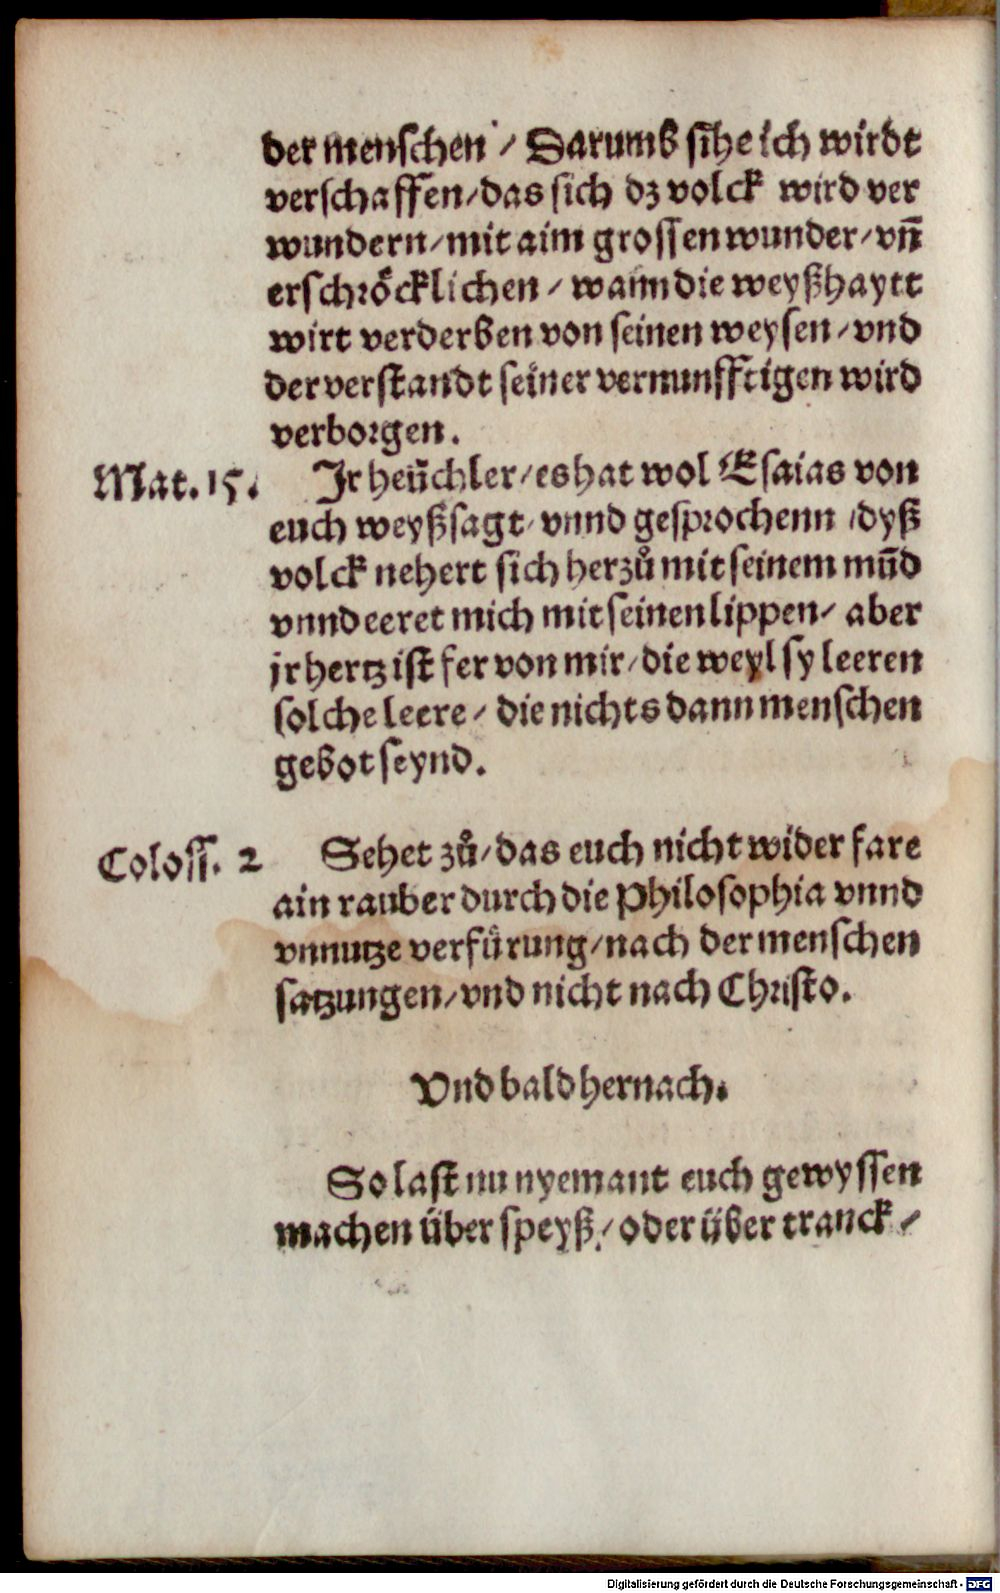 der menschen / Darumb sihe ich wirdt
verschaffen/das sich dz volck wird ver
wundern/mit aim grossen wunder/vn̄
erschröcklichen / wann die weyßhaytt
wirt verderben von seinen weysen/vnd
der verstandt seiner vernunfftigen wird
verborgen.
Mat. 15. Jr heüchler/es hat wol Esaias von
euch weyßsagt/vnnd gesprochenn /dyß
volck nehert sich herzů mit seinem mūd
vnnd eeret mich mit seinen lippen/ aber
jr hertz ist fer von mir/die weyl sy leeren
solche leere / die nichts dann menschen
gebot seynd.
Coloss. 2 Sehet zů/das euch nicht wider fare
ain rauber durch die Philosophia vnnd
vnnutze verfürung/nach der menschen
satzungen/vnd nicht nach Christo.
Vnd bald hernach.
So last nu nyemant euch gewyssen
machen über speyß/oder über tranck/
Digitalisierung gefördert durch die Deutsche Forschungsgemeinschaft - DFG